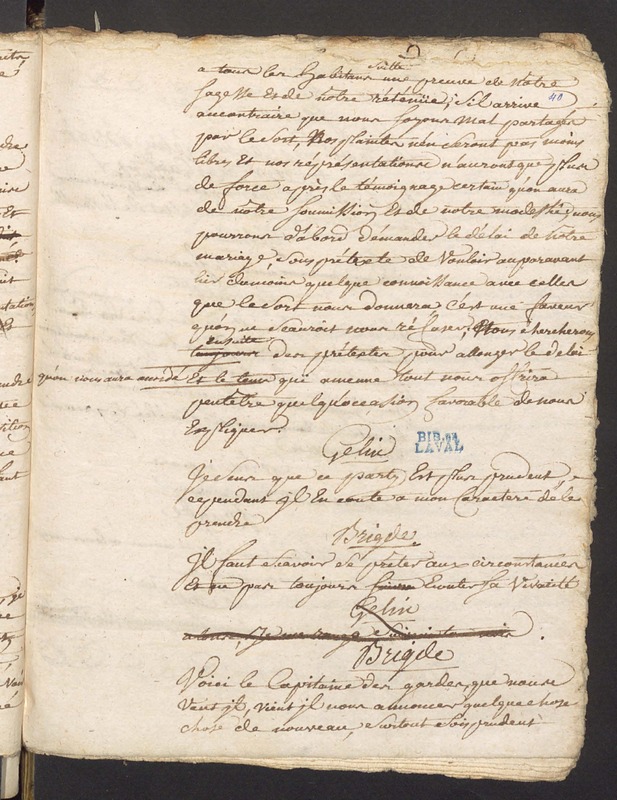 a tous les habitans une preuve de notre
suitte
sagesse Et de notre réténüe; s'il arrive
40
aucontraire que nous soyons mal partagés
par le sort, Nos plaintes n'en seront pas moins
libres Et nos représentations n'auront que plus
de force après le témoignage certain qu'on aura
de nôtre soumission Et de notre modestie; nous
pourrons d'abord démander le délai de notre
mariage sous prétexte de vouloir auparavant
lier dumoins quelque connoissance avec celles
que le sort nous donnera, c'est une faveur
qu'on ne sçauroit nous réfuser; Nous chercherons
ensuite
toujours des prétextes pour allonger le délai
qu'on nous aura accordé Et le tems qui amene tout nous offrira
peutetre quelqu'occasion favorable de nous
Expliquer.
Gelin
BIB. DE
LAVAL
Je sens que ce party Est plus prudent,
cependant il En coute a mon Caractere de le
prendre
Brigde
Il faut sçavoir se prêter aux circonstances
Et ne pas toujours Ecouter sa vivacité
Gelin
Brigde
Voici le Capitaine des gardes, que nous
veut il, vient il nous annoncer quelque chose
chose de nouveau, surtout sois prudent